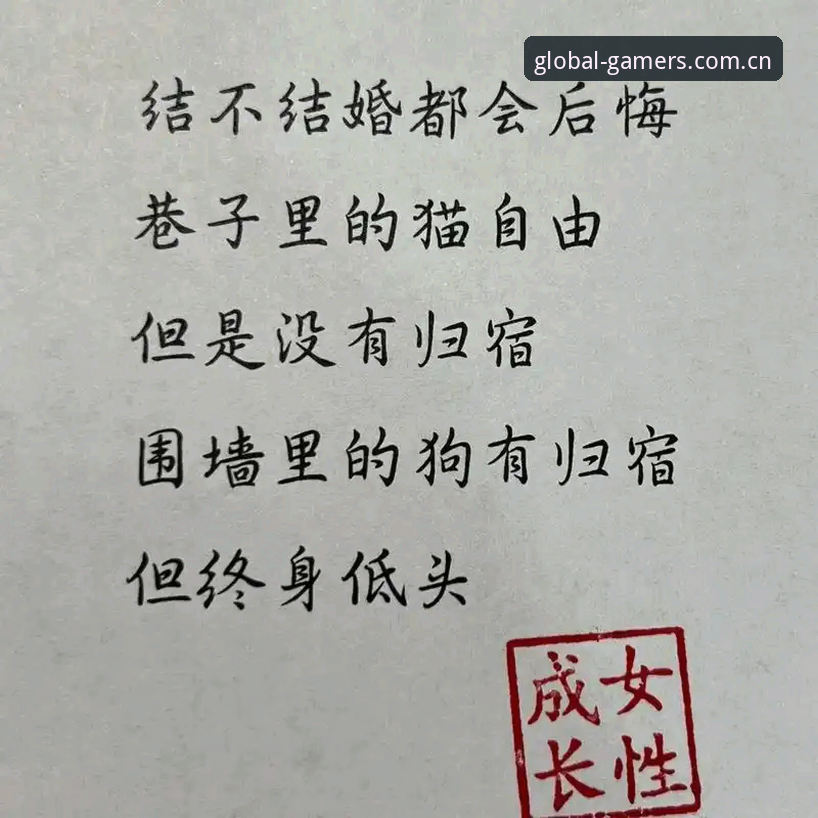 global-gamers.com.cn
结不结婚都会后悔
巷子里的猫自由
但是没有归宿
围墙里的狗有归宿
但终身低头
女性
成长